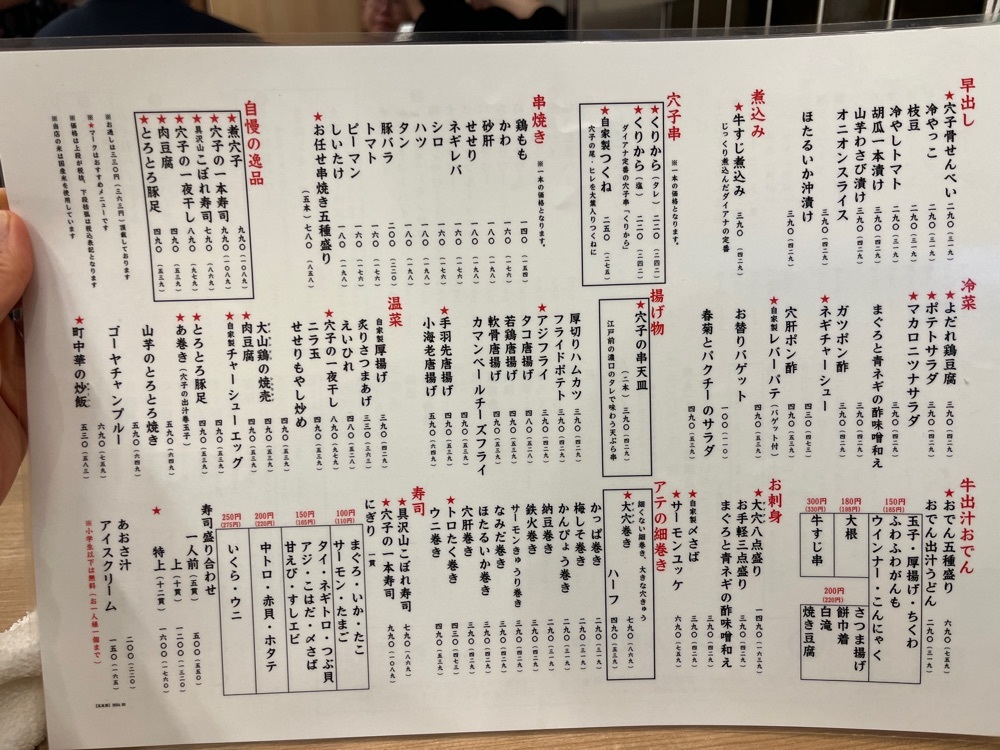 早出し
★穴子骨せんべい 二九〇（三一九）
冷やっこ 二九〇（三一九）
枝豆 二九〇（三一九）
冷やしトマト 二九〇（三一九）
胡瓜一本漬け 三九〇（四二九）
山芋わさび漬け 三九〇（四二九）
オニオンスライス 三九〇（四二九）
ほたるいか沖漬け 三九〇（四二九）
煮込み
★牛すじ煮込み 三九〇（四二九）
じっくり煮込んだダイアナの定番
穴子串
※一本の価格となります。
★くりから（タレ） 二二〇（二四二）
★くりから（塩） 二二〇（二四二）
ダイアナ定番の穴子串「くりから」
★自家製つくね 二五〇（二七五）
穴子の尾・ヒレを大葉入りつくねに
串焼き
※一本の価格となります。
鶏もも 一四〇（一五四）
かわ 一六〇（一七六）
砂肝 一八〇（一九八）
せせり 一八〇（一九八）
ネギレバ 一六〇（一七六）
シロ 一八〇（一九八）
ハツ 一八〇（一九八）
タン 一八〇（一九八）
豚バラ 二〇〇（二二〇）
トマト 一六〇（一七六）
ピーマン 一六〇（一七六）
しいたけ 一八〇（一九八）
★お任せ串焼き五種盛り（五本）七八〇（八五八）
自慢の逸品
★煮穴子 九九〇（一〇八九）
★穴子の一本寿司 九九〇（一〇八九）
★具沢山こぼれ寿司 七九〇（八六九）
★穴子の一夜干し 八九〇（九七九）
★肉豆腐 四九〇（五三九）
★とろとろ豚足 四九〇（五三九）
※お通しは三三〇円（三六三円）頂戴しております
※★マークはおすすめメニューです
※価格は上段が税抜、下段括弧は税込表記となります
※当店の米は国産米を使用しています
冷菜
★よだれ鶏豆腐 三九〇（四二九）
★ポテトサラダ 三九〇（四二九）
★マカロニツナサラダ 三九〇（四二九）
まぐろと青ネギの酢味噌和え 三九〇（四二九）
ガツポン酢 三九〇（四二九）
★ネギチャーシュー 三九〇（四二九）
穴肝ポン酢
★自家製レバーパテ（バゲット付） 四九〇（五三九）
お替りバゲット 一〇〇（一一〇）
春菊とパクチーのサラダ 四九〇（五三九）
揚げ物
★穴子の串天皿（二本）三九〇（四二九）
江戸前の濃口のタレで味わう天ぷら串
厚切りハムカツ 三九〇（四二九）
フライドポテト 三九〇（四二九）
★アジフライ 三九〇（四二九）
タコ唐揚げ
若鶏唐揚げ
軟骨唐揚げ
カマンベールチーズフライ
★手羽先唐揚げ
小海老唐揚げ
温菜
自家製厚揚げ 三九〇（四二九）
炙りさつまあげ 三三〇（三六三）
えいひれ 四八〇（五二八）
★穴子の一夜干し 八九〇（九七九）
ニラ玉 四九〇（五三九）
せせりもやし炒め 四九〇（五三九）
大山鶏の焼売
★肉豆腐 四九〇（五三九）
★自家製チャーシューエッグ 四九〇（五三九）
★とろとろ豚足 四九〇（五三九）
★あま巻き（穴子の出汁巻玉子）
山芋のとろとろ焼き
ゴーヤチャンプルー
★町中華の炒飯 五三〇（五八三）
牛出汁おでん
★おでん五種盛り 六九〇（七五九）
おでん出汁うどん 二九〇（三一九）
150円（165円）
玉子・厚揚げ・ちくわ
ふわふわがんも
ウインナー・こんにゃく
180円（198円）
大根
300円（330円）
牛すじ串
200円（220円）
さつま揚げ
餅巾着
白滝
焼き豆腐
お刺身
★大穴八点盛り 一四九〇（一六三九）
お手軽三点盛り
まぐろと青ネギの酢味噌和え 三九〇（四二九）
★自家製〆さば
★サーモンユッケ 六九〇（七五九）
アテの細巻き
細くない細巻き、大きな穴きゅう
★大穴巻き 七九〇（八六九）
ハーフ 四九〇（五三九）
かっぱ巻き 二九〇（三一九）
梅しそ巻き 二九〇（三一九）
かんぴょう巻き 二九〇（三一九）
納豆巻き
鉄火巻き
サーモンきゅうり巻き
なみだ巻き
ほたるいか巻き
穴肝巻き 三九〇（四二九）
★トロたく巻き 四三〇（四七三）
ウニ巻き
寿司
★具沢山こぼれ寿司 七九〇（八六九）
★穴子の一本寿司 九九〇（一〇八九）
にぎり 一貫
100円（110円）
まぐろ・いか・たこ
サーモン・たまご
150円（165円）
タイ・ネギトロ・つぶ貝
アジ・こはだ・〆さば
甘えび・すしエビ
200円（220円）
中トロ・赤貝・ホタテ
250円（275円）
いくら・ウニ
寿司盛り合わせ
一人前（五貫） 五〇〇（五五〇）
上（十貫） 一二〇〇（一三二〇）
★特上（十二貫） 一六〇〇（一七六〇）
あおさ汁 二〇〇（二二〇）
アイスクリーム 一五〇（一六五）
※小学生以下は無料（お一人様一個まで）